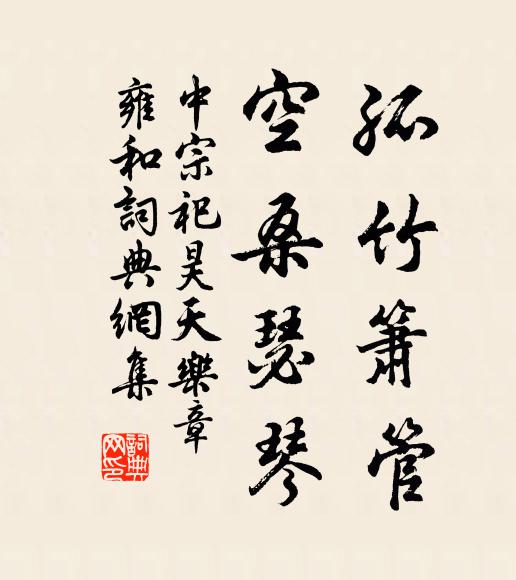 孤竹簫管
空桑瑟琴
中宗祀昊天樂章
雍和詞典網集
詞典
网印